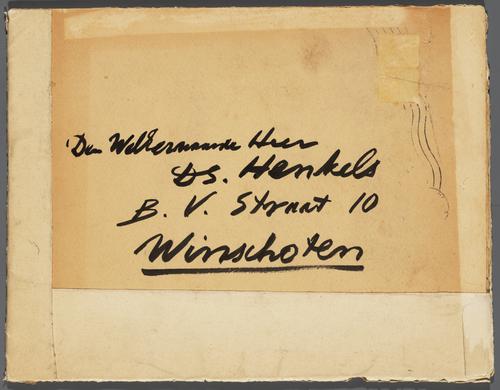 Den WelEerwaarde Heer
Ds. Henkels
B. V. Straat 10
Winschoten